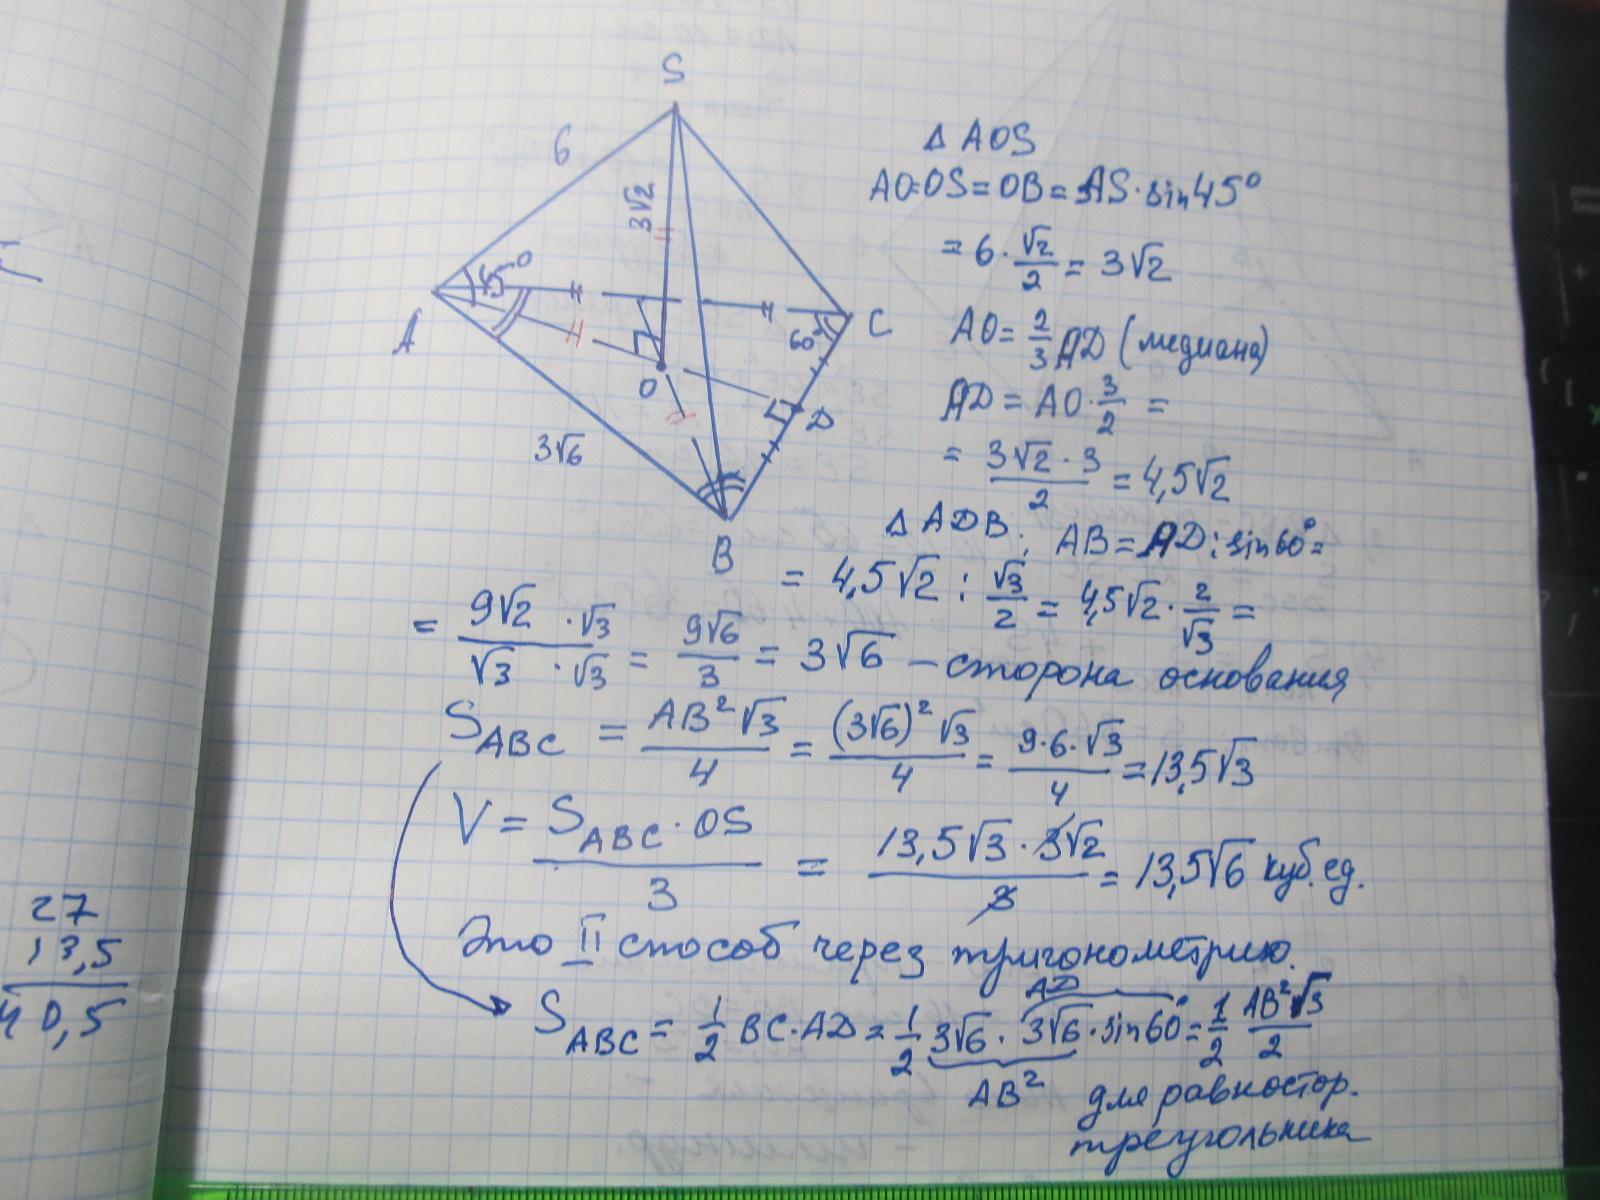 S
6
3√2
45°
A
60°
C
O
D
3√6
B
Δ AOS
AO=OS=OB=AS·sin45°
= 6·√2/2 = 3√2
AO = 2/3 AD (медиана)
AD = AO·3/2 =
= 3√2·3/2 = 4,5√2
Δ ADB: AB = AD : sin60° =
= 4,5√2 : √3/2 = 4,5√2 · 2/√3 =
= 9√2·√3/√3·√3 = 9√6/3 = 3√6 – сторона основания
S ABC = AB²√3/4 = (3√6)²√3/4 = 9·6·√3/4 = 13,5√3
V = S ABC · OS/3 = 13,5√3·3√2/3 = 13,5√6 куб.ед.
Это II способ через тригонометрию.
AD
S ABC = 1/2 BC·AD = 1/2 3√6 · 3√6 · sin60° = 1/2 AB²√3/2
AB² для равностор.
треугольника
27
13,5
40,5